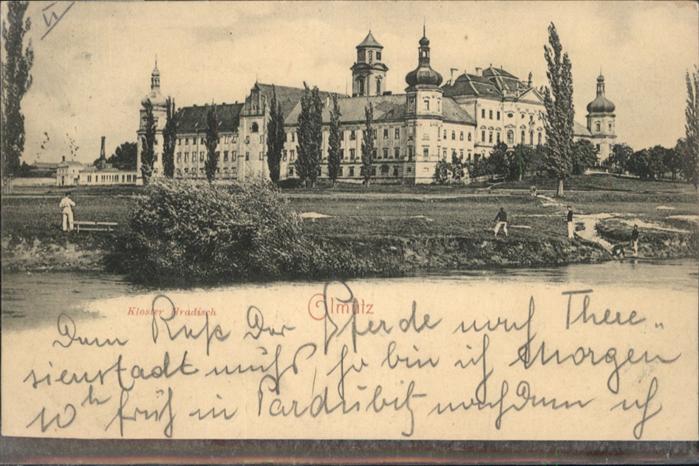 Kloster Hradisch
Olmütz
Dem der Pferde nach There-
sienstadt muß, so bin ich Morgen
10h früh in Pardubitz nachdem ich